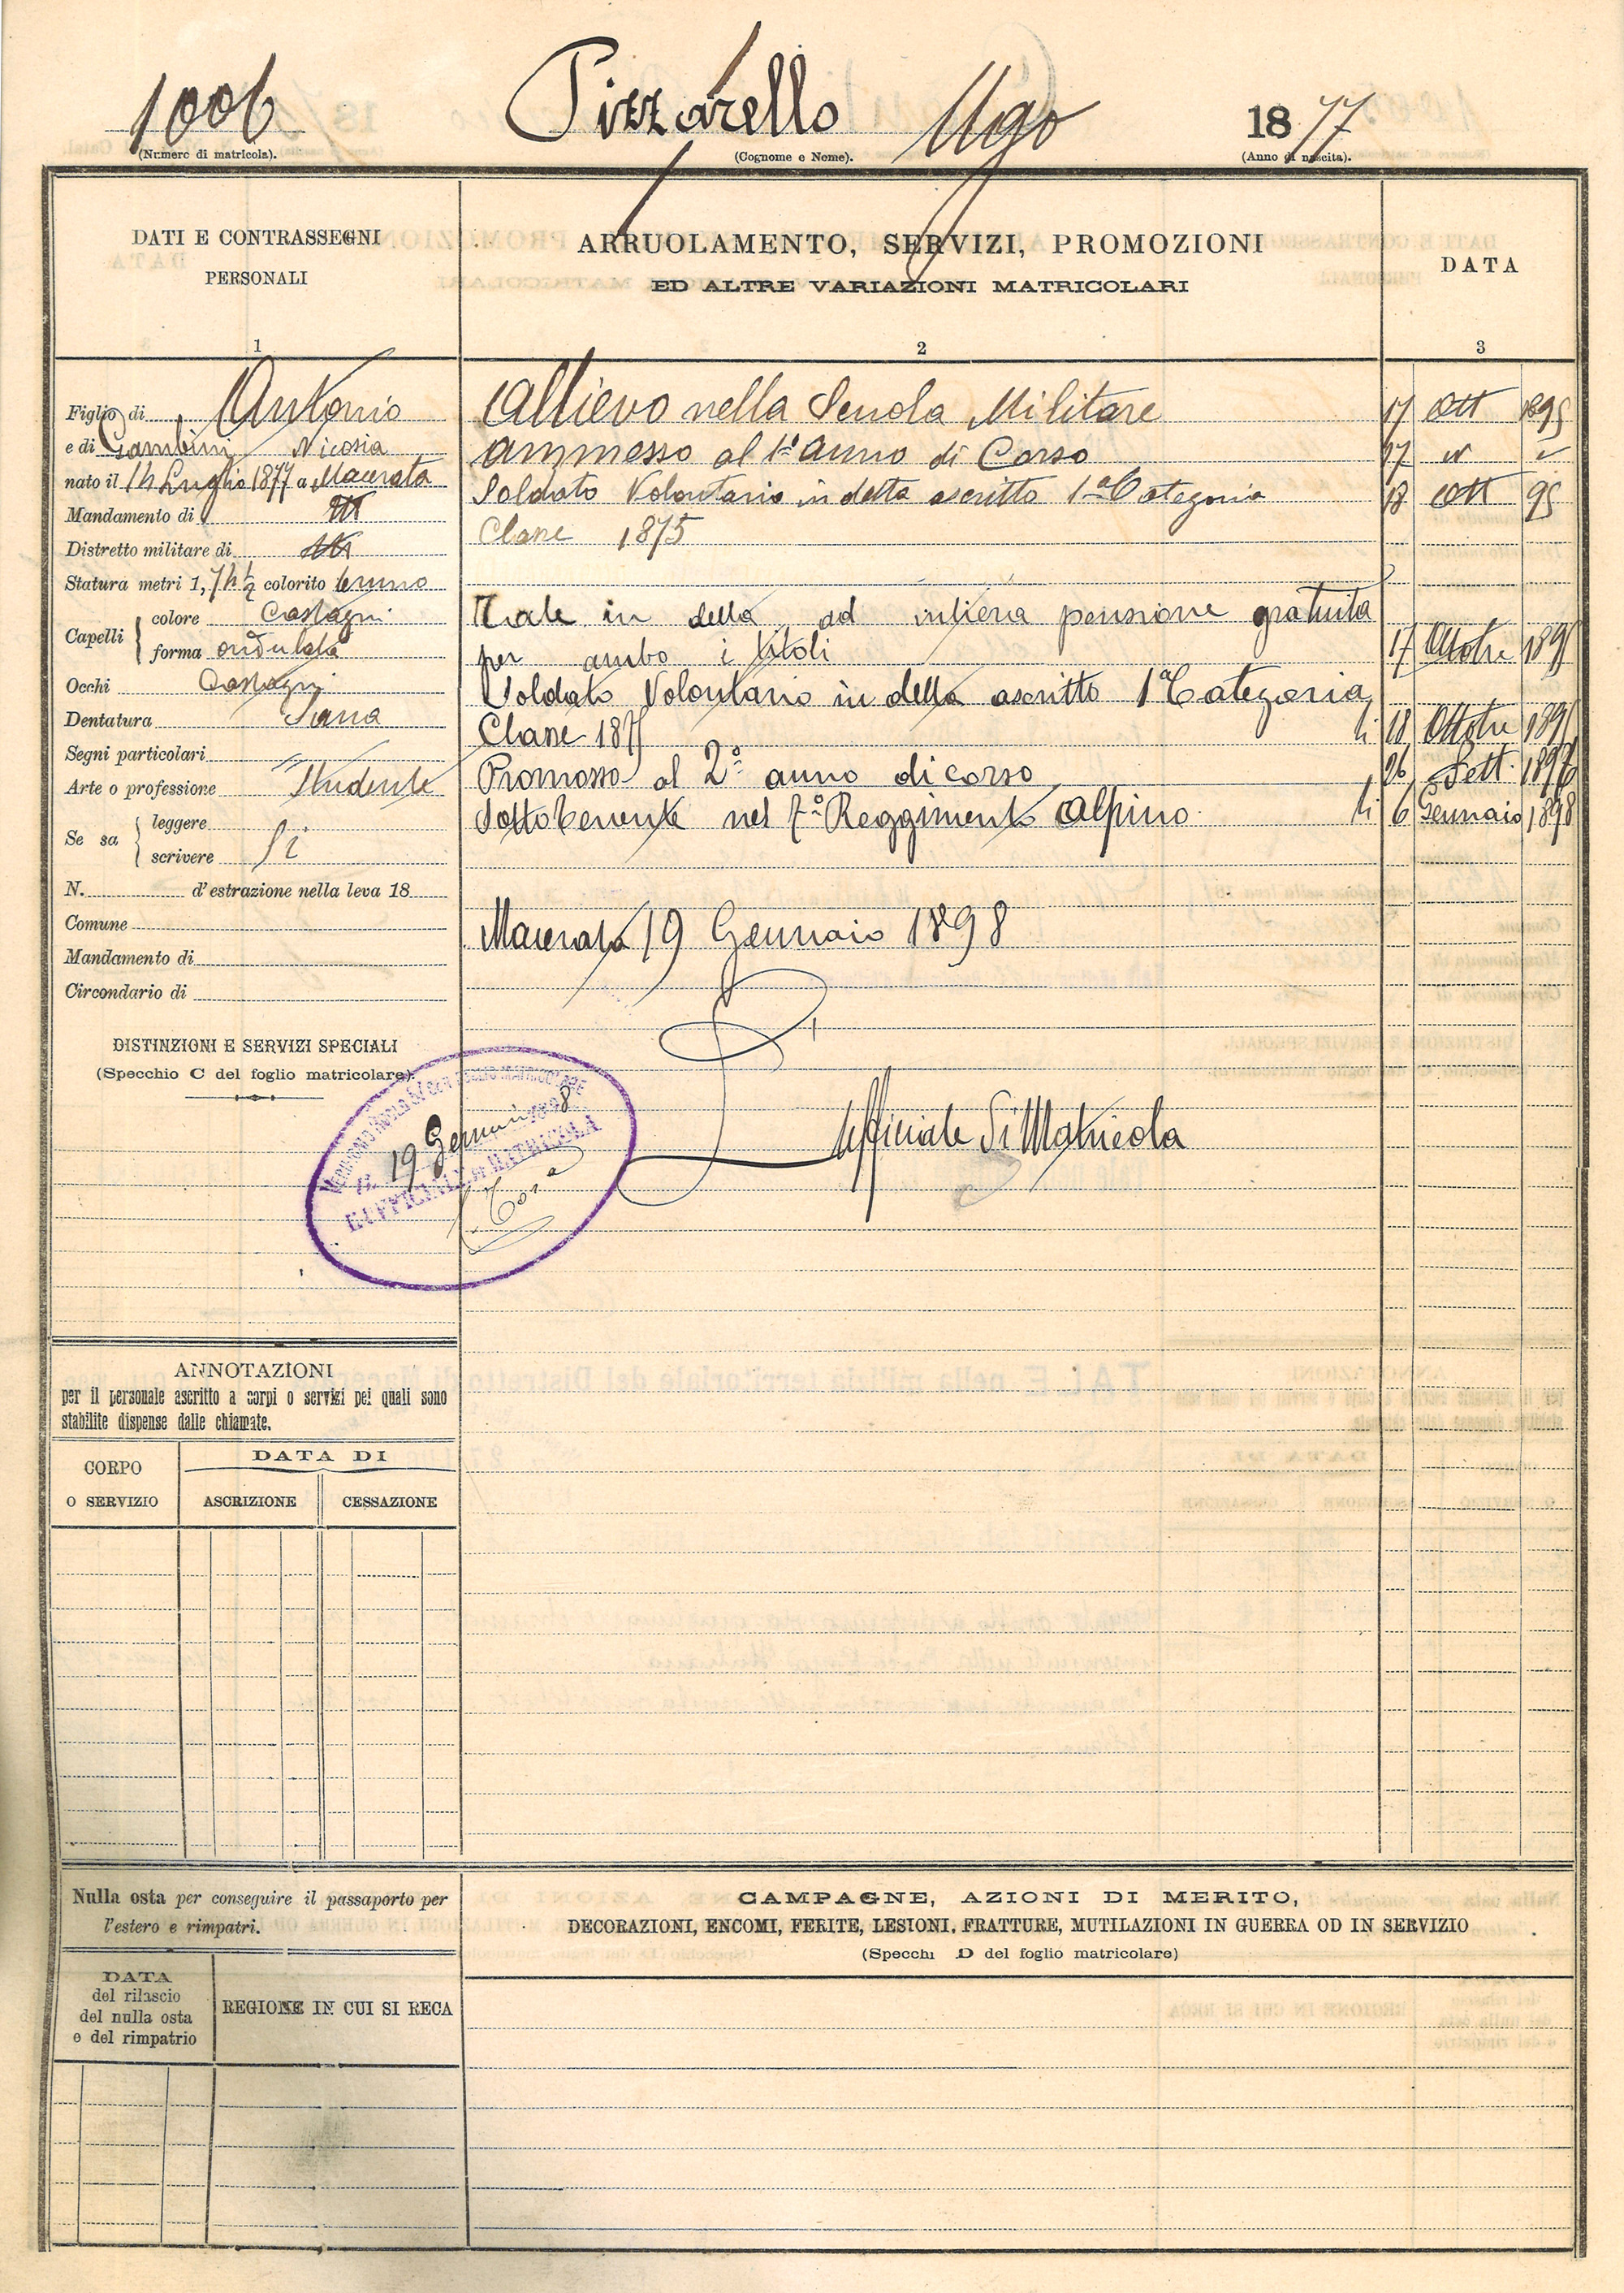 1006 Pizzarello Ugo 1877
(Numero di matricola). (Cognome e Nome). (Anno di nascita).
DATI E CONTRASSEGNI
PERSONALI
1
ARRUOLAMENTO, SERVIZI, PROMOZIONI
ED ALTRE VARIAZIONI MATRICOLARI
2
DATA
3
Figlio di Antonio
e di Gambini Nicosia
nato il 14 Luglio 1877 a Macerata
Mandamento di
Distretto militare di
Statura metri 1,74 ½ colorito bruno
Capelli colore Castagni
forma ondulata
Occhi Castagni
Dentatura Sana
Segni particolari
Arte o professione Studente
Se sa leggere
scrivere Si
N. d'estrazione nella leva 18
Comune
Mandamento di
Circondario di
DISTINZIONI E SERVIZI SPECIALI
(Specchio C del foglio matricolare).
Allievo nella Scuola Militare 17 Ott 1895
Ammesso al 1º anno di Corso 17 " "
Soldato Volontario in detta ascritto 1ª Categoria 18 Ott 95
Classe 1875
Tale in della ad intiera pensione gratuita
per ambo i titoli 17 Ottobre 1895
Soldato Volontario in della ascritto 1ª Categoria
Classe 1875 li 18 Ottobre 1895
Promosso al 2º anno di corso 26 Sett. 1896
Sottotenente nel 7º Reggimento Alpino li 6 Gennaio 1898
Macerata 19 Gennaio 1898
Ufficiale Di Matricola
19 Gennaio 1898
L'UFFICIALE DI MATRICOLA
ANNOTAZIONI
per il personale ascritto a corpi o servizi pei quali sono
stabilite dispense dalle chiamate.
CORPO
O SERVIZIO
DATA DI
ASCRIZIONE CESSAZIONE
Nulla osta per conseguire il passaporto per
l'estero e rimpatri.
DATA
del rilascio
del nulla osta
o del rimpatrio
REGIONE IN CUI SI RECA
CAMPAGNE, AZIONI DI MERITO,
DECORAZIONI, ENCOMI, FERITE, LESIONI, FRATTURE, MUTILAZIONI IN GUERRA OD IN SERVIZIO
(Specchi D del foglio matricolare)